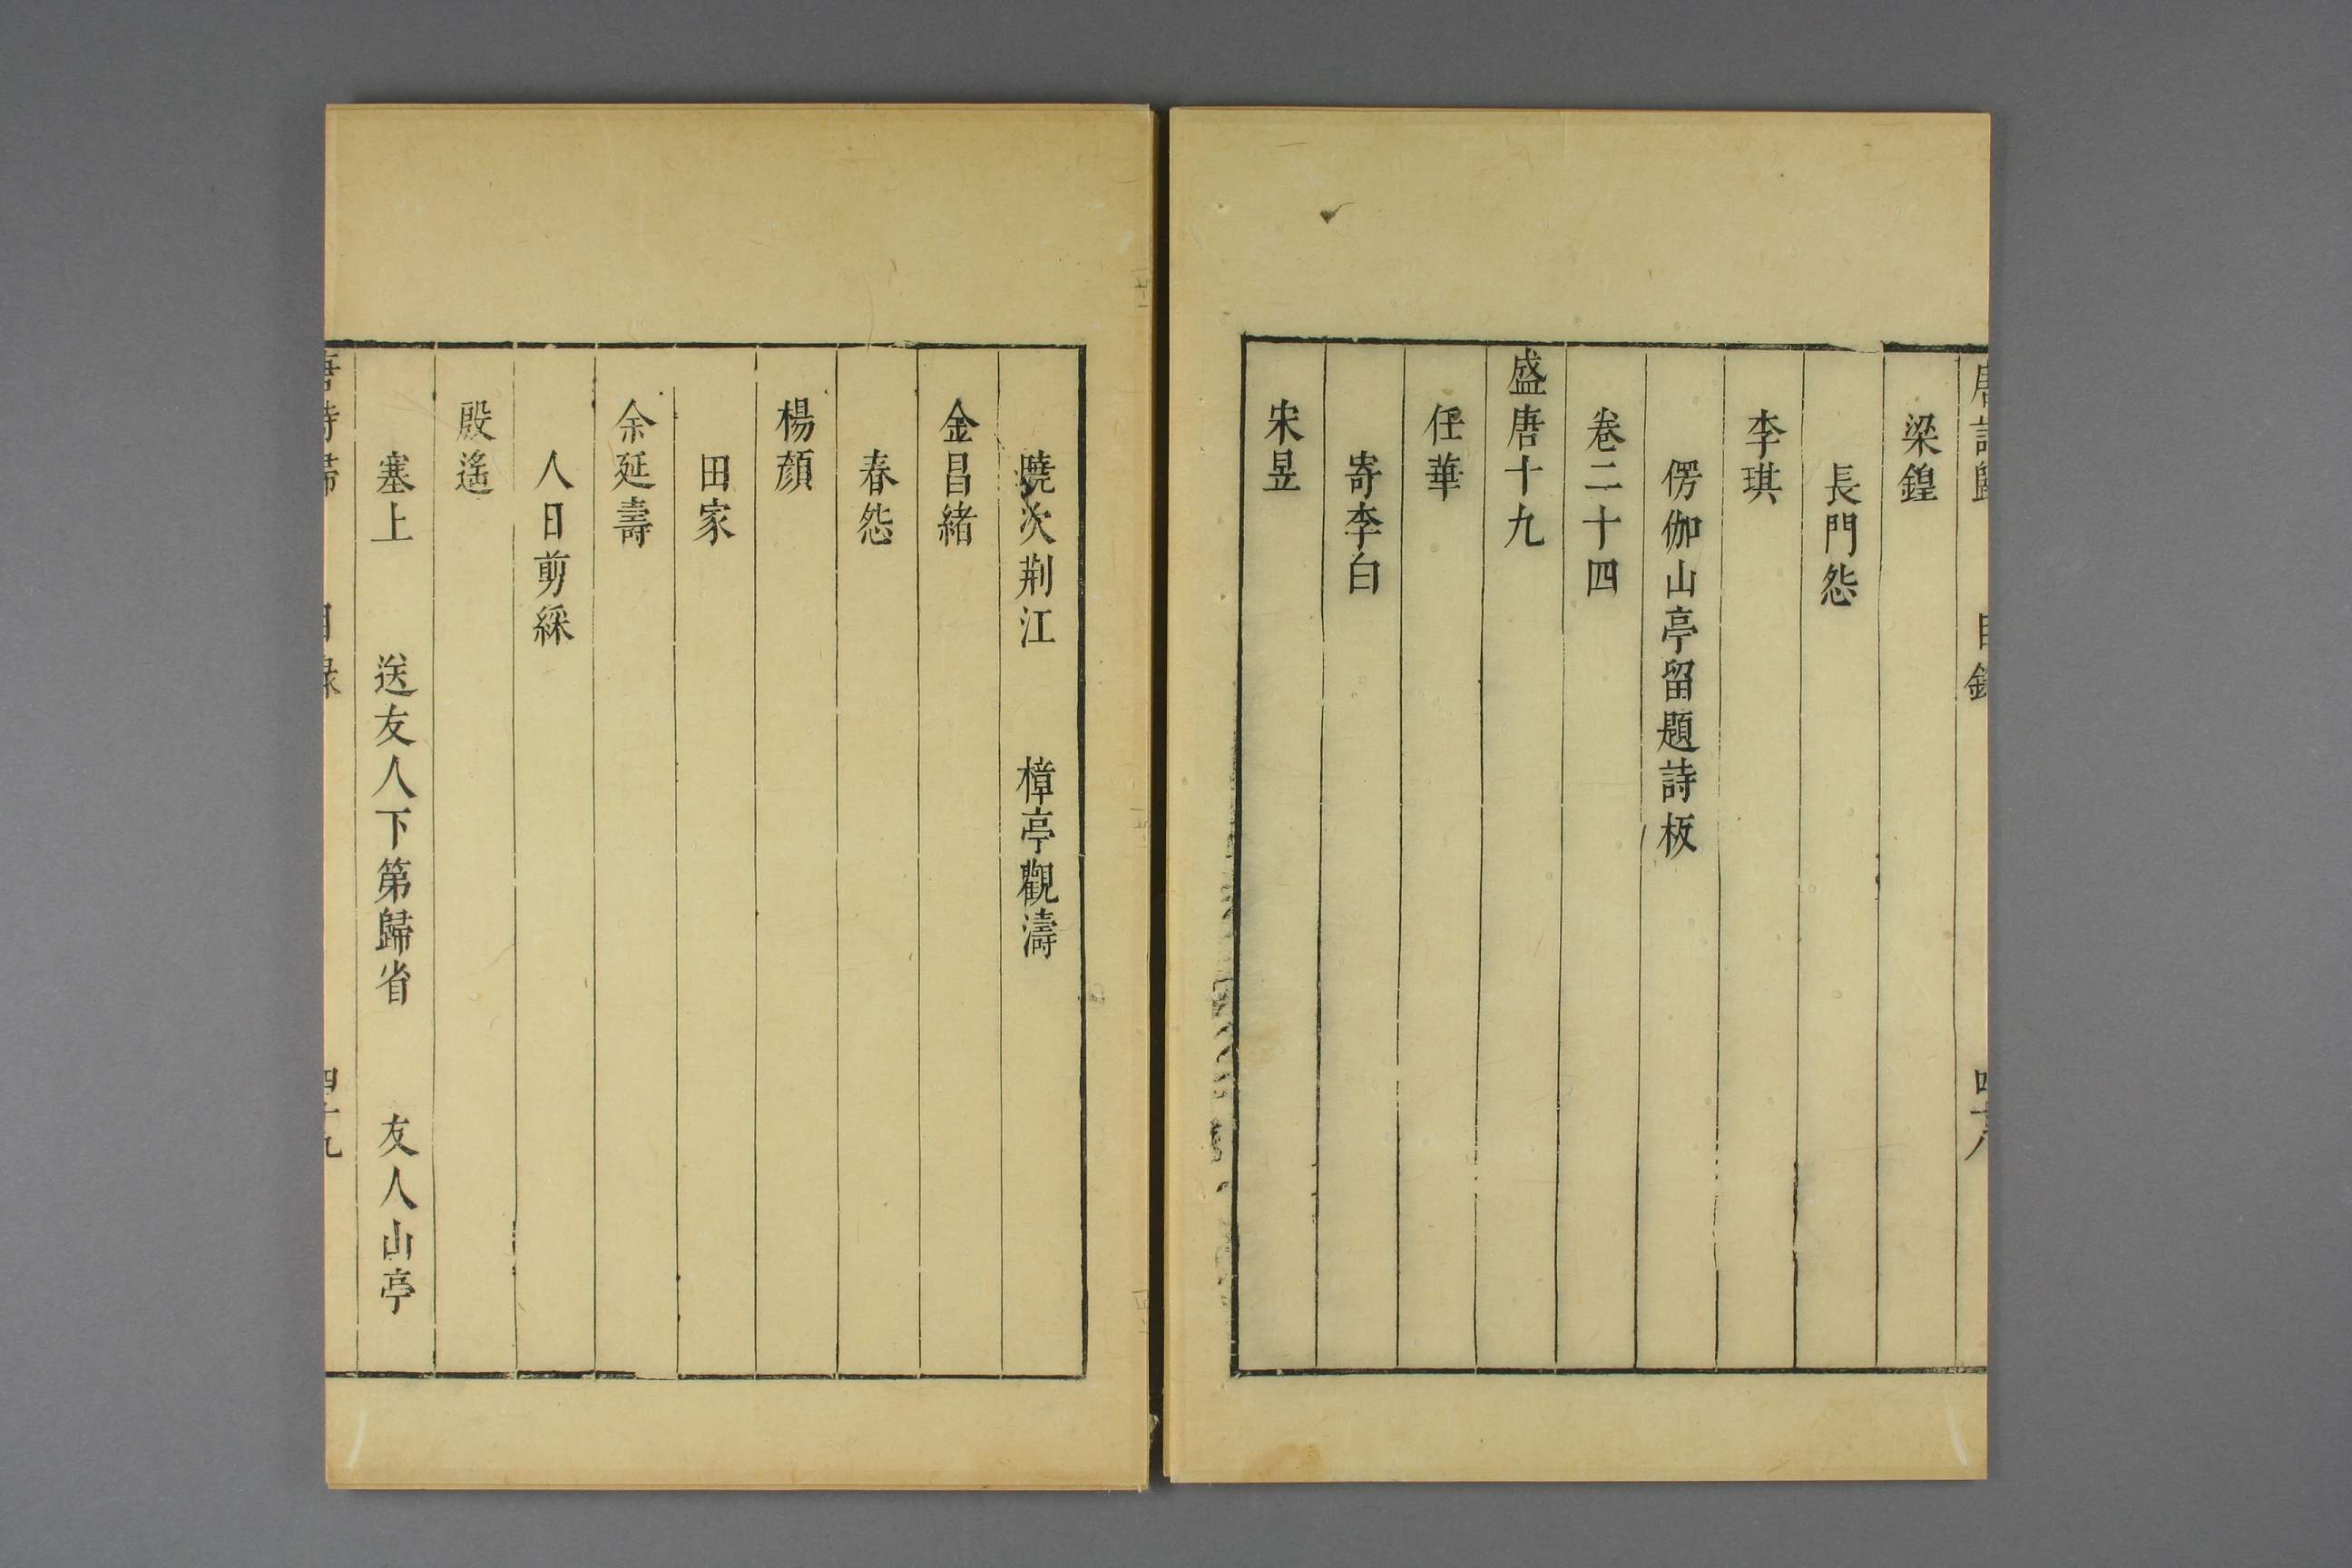 唐詩歸 目錄 四十八
梁鍠
長門怨
李琪
愣伽山亭留題詩板
卷二十四
盛唐十九
任華
寄李白
宋昱
曉次荆江 樟亭觀濤
金昌緒
春怨
楊顏
田家
余延壽
人日剪綵
殷遙
塞上 送友人下第歸省 友人山亭
唐詩歸 目錄 四十九